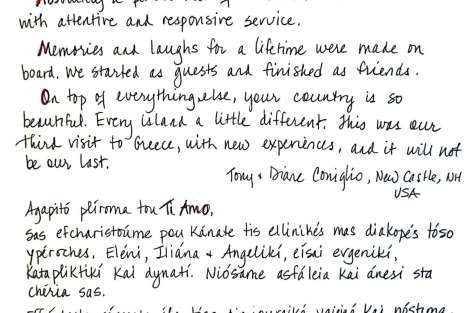 with attentive and responsive service.
Memories and laughs for a lifetime were made on
board. We started as guests and finished as friends.
On top of everything else, your country is so
beautiful. Every island a little different. This was our
third visit to Greece, with new experiences, and it will not
be our last.
Tony + Diane Coniglio, New Castle, NH
USA
Agapitó plíroma tou Ti Amo,
Sas efcharistoúme pou kánate tis elliniḱés mas diakopés tóso
ypéroches. Eléni, Iliána & Angelikí, eísai evgenikí,
katapliktikí kai dynatí. Niósame asfáleia kai ánesi sta
chéria sas.